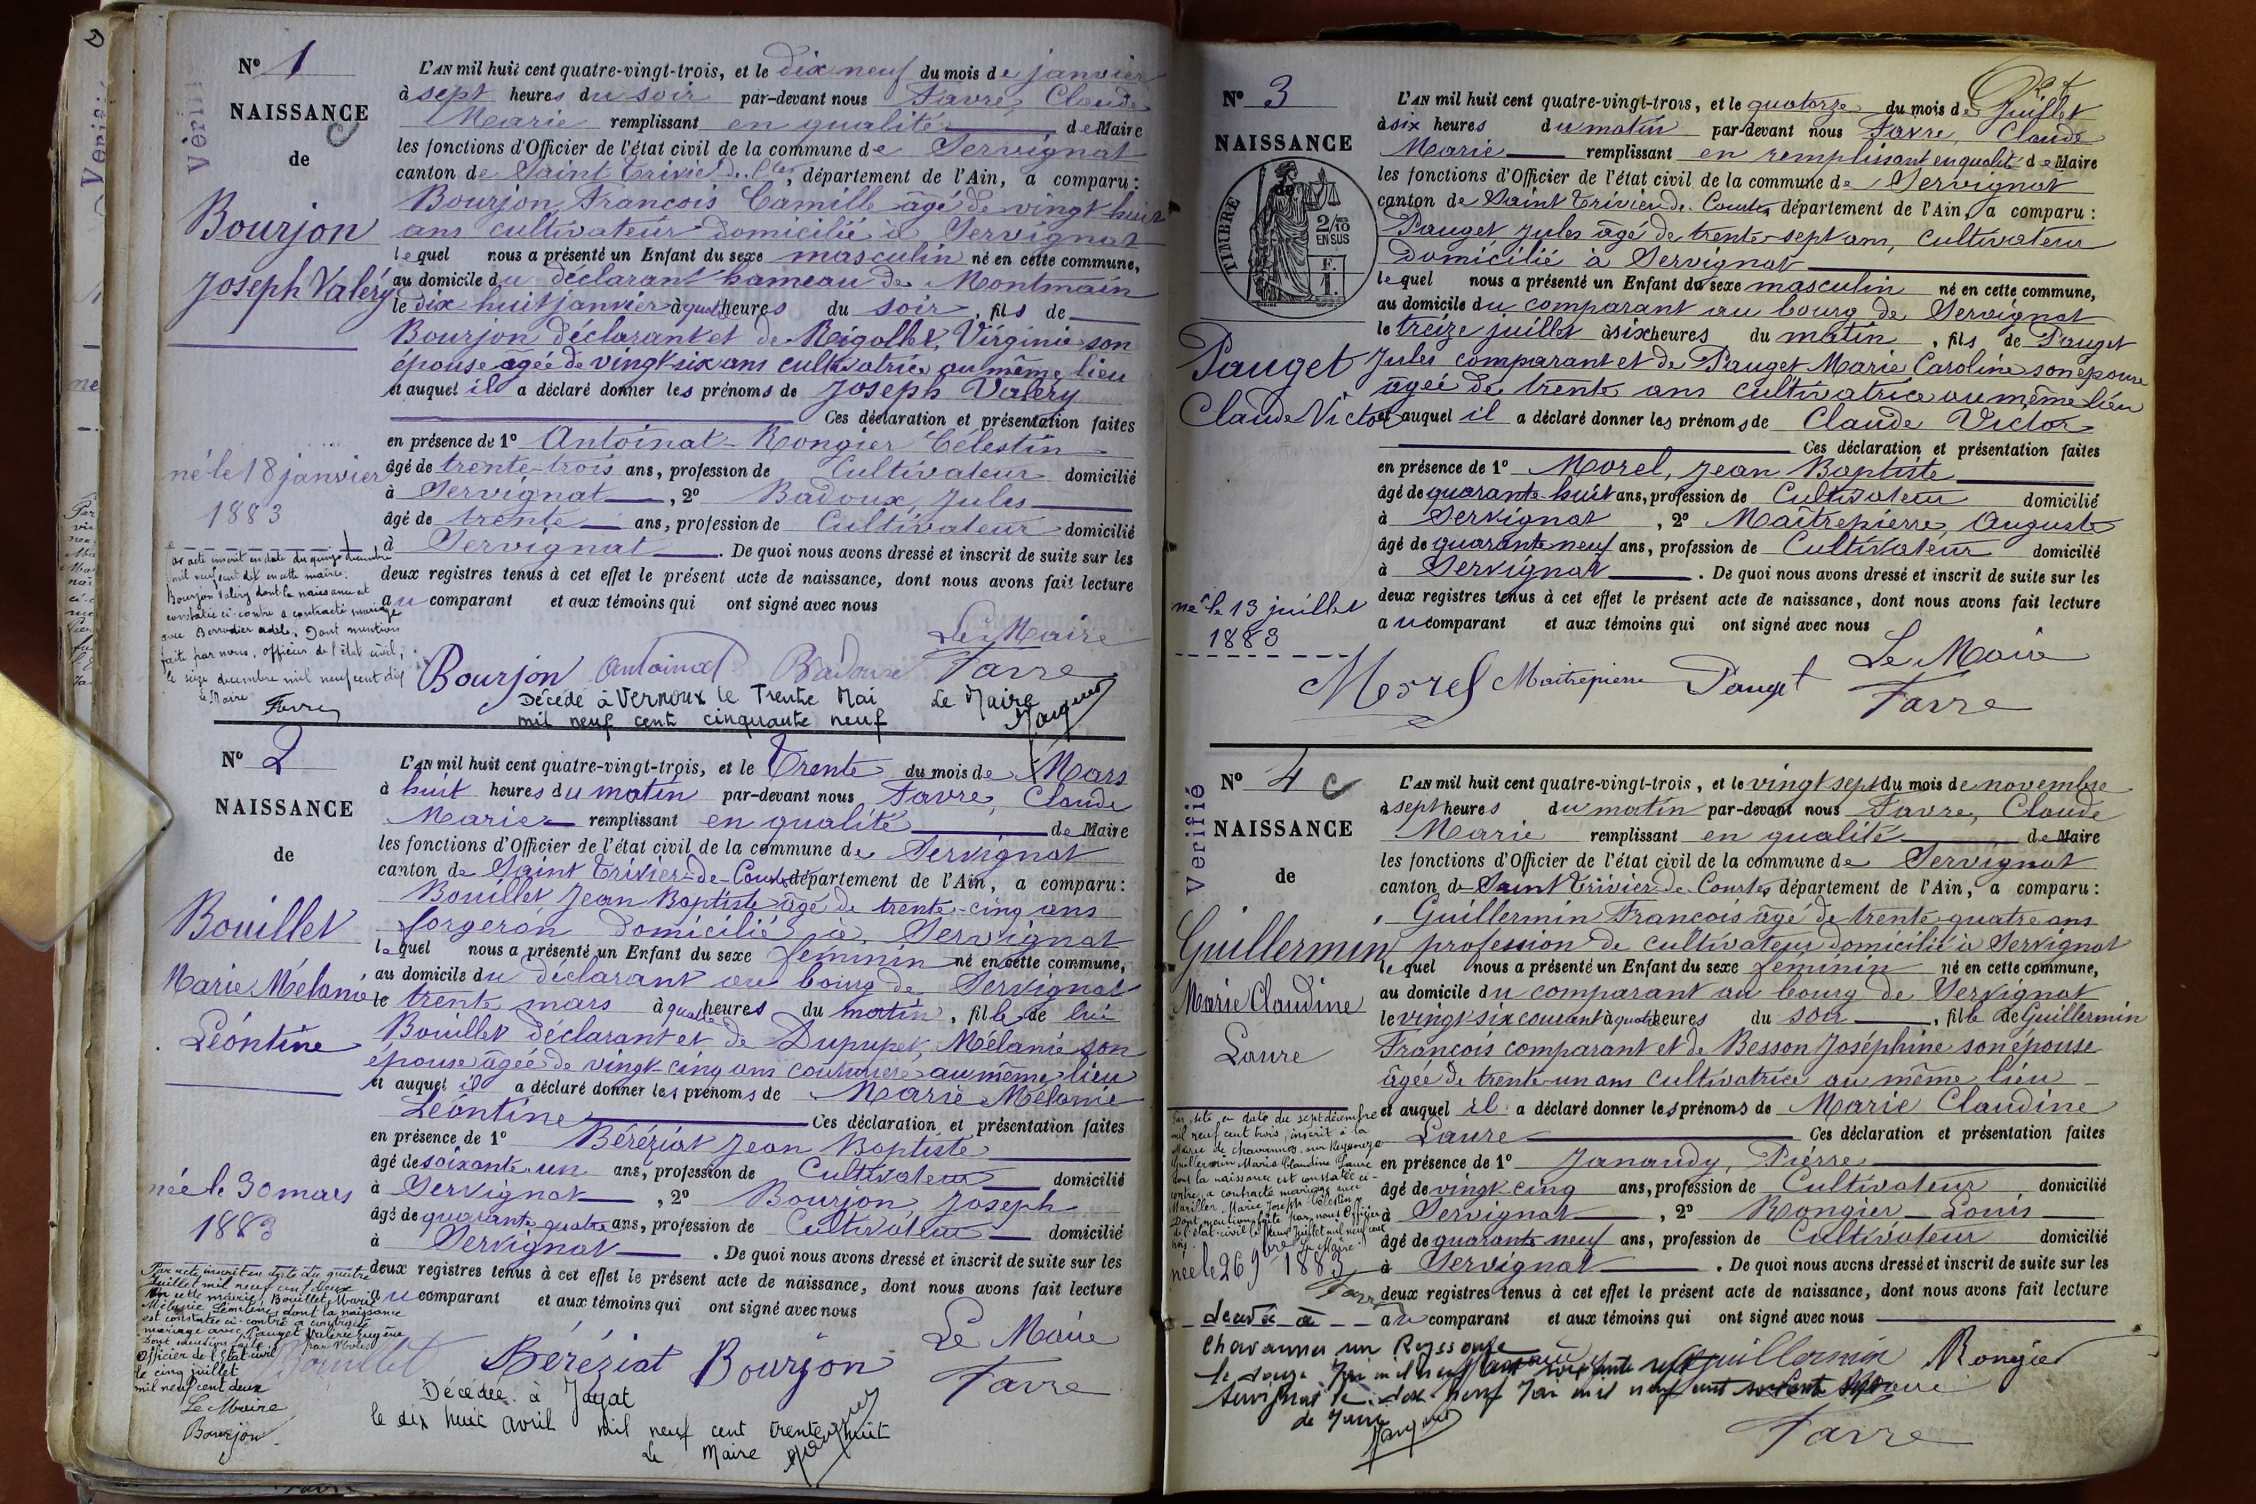 Nº 1
NAISSANCE
de
Bourjon
Joseph Valéry
né le 18 janvier
1883
Vérifié
L'AN mil huit cent quatre-vingt-trois, et le dix neuf du mois de janvier
à sept heures du soir par-devant nous Favre, Claude
Marie remplissant en qualité de Maire
les fonctions d'Officier de l'état civil de la commune de Servignat
canton de Saint Trivier de Ctes, département de l'Ain, a comparu :
Bourjon François Camille âgé de vingt huit
ans cultivateur domicilié à Servignat
lequel nous a présenté un Enfant du sexe masculin né en cette commune,
au domicile du déclarant hameau de Montmain
le dix huit janvier à quatre heures du soir, fils de
Bourjon déclarant et de Rigollet, Virginie son
épouse agée de vingt-six ans cultivatrice au même lieu
et auquel il a déclaré donner les prénoms de Joseph Valéry
Ces déclaration et présentation faites
en présence de 1º Antoinat-Rongier Célestin
âgé de trente-trois ans, profession de Cultivateur domicilié
à Servignat, 2º Badoux, Jules
âgé de trente ans, profession de Cultivateur domicilié
à Servignat. De quoi nous avons dressé et inscrit de suite sur les
deux registres tenus à cet effet le présent acte de naissance, dont nous avons fait lecture
au comparant et aux témoins qui ont signé avec nous
Le Maire
Bourjon Antoinat Badoux Favre
Par acte inscrit en date du quinze décembre
mil neuf cent dix en cette mairie.
Bourjon Valéry dont la naissance est
constatée ci-contre a contracté mariage
avec Berrodier Adèle. Dont mention
faite par nous, officier de l'état civil,
le seize decembre mil neuf cent dix
Le Maire
Favre
Décédé à Vernoux le Trente Mai
mil neuf cent cinquante neuf
Le Maire
Nº 2
NAISSANCE
de
Bouillet
Marie Mélanie
Léontine
née le 30 mars
1883
L'AN mil huit cent quatre-vingt-trois, et le Trente du mois de Mars
à huit heures du matin par-devant nous Favre, Claude
Marie remplissant en qualité de Maire
les fonctions d'Officier de l'état civil de la commune de Servignat
canton de Saint Trivier-de-Courtes département de l'Ain, a comparu :
Bouillet Jean Baptiste âgé de trente-cinq ans
forgeron domicilié à Servignat
lequel nous a présenté un Enfant du sexe féminin né en cette commune,
au domicile du déclarant au bourg de Servignat
le trente mars à quatre heures du matin, fille de lui
Bouillet déclarant et de Dupupet, Mélanie son
épouse âgée de vingt-cinq ans couturière au même lieu
et auquel il a déclaré donner les prénoms de Marie Mélanie
Léontine Ces déclaration et présentation faites
en présence de 1º Béréziat Jean Baptiste
âgé de soixante-un ans, profession de Cultivateur domicilié
à Servignat, 2º Bourjon, Joseph
âgé de quarante quatre ans, profession de Cultivateur domicilié
à Servignat. De quoi nous avons dressé et inscrit de suite sur les
deux registres tenus à cet effet le présent acte de naissance, dont nous avons fait lecture
au comparant et aux témoins qui ont signé avec nous
Le Maire
Bouillet Béréziat Bourjon Favre
Par acte inscrit en date du quatre
Juillet mil neuf cent deux
en cette mairie, Bouillet Marie
Mélanie Léontine, dont la naissance
est constatée ci-contre a contracté
mariage avec Pauget Valérie Eugène
Dont mention faite par Nous
Officier de l'Etat-civil
le cinq juillet
mil neuf cent deux
Le Maire
Bourjon
Décédée à Jayat
le dix huit avril mil neuf cent trente huit
Le Maire
Nº 3
NAISSANCE
de
TIMBRE
2/10
EN SUS
F.
1.
Pauget
Claude Victor
né le 13 juillet
1883
L'AN mil huit cent quatre-vingt-trois, et le quatorze du mois de Juillet
à six heures du matin par-devant nous Favre, Claude
Marie remplissant en remplissant en qualité de Maire
les fonctions d'Officier de l'état civil de la commune de Servignat
canton de Saint Trivier de Courtes département de l'Ain, a comparu :
Pauget Jules âgé de trente-sept ans, cultivateur
domicilié à Servignat
lequel nous a présenté un Enfant du sexe masculin né en cette commune,
au domicile du comparant au bourg de Servignat
le treize juillet à six heures du matin, fils de Pauget
Jules comparant et de Pauget Marie Caroline son épouse
âgée de trente ans cultivatrice au même lieu
et auquel il a déclaré donner les prénoms de Claude Victor
Ces déclaration et présentation faites
en présence de 1º Morel, Jean Baptiste
âgé de quarante-huit ans, profession de Cultivateur domicilié
à Servignat, 2º Maîtrepierre Auguste
âgé de quarante neuf ans, profession de Cultivateur domicilié
à Servignat. De quoi nous avons dressé et inscrit de suite sur les
deux registres tenus à cet effet le présent acte de naissance, dont nous avons fait lecture
au comparant et aux témoins qui ont signé avec nous
Le Maire
Morel Maitrepierre Pauget Favre
Nº 4
NAISSANCE
de
Verifié
Guillermin
Marie Claudine
Laure
née le 26 9bre 1883
L'AN mil huit cent quatre-vingt-trois, et le vingt sept du mois de novembre
à sept heures du matin par-devant nous Favre, Claude
Marie remplissant en qualité de Maire
les fonctions d'Officier de l'état civil de la commune de Servignat
canton de Saint Trivier de Courtes département de l'Ain, a comparu :
Guillermin François âgé de trente-quatre ans
profession de cultivateur domicilié à Servignat
lequel nous a présenté un Enfant du sexe féminin né en cette commune,
au domicile du comparant au bourg de Servignat
le vingt-six courant à quatre heures du soir, fille de Guillermin
François comparant et de Besson Joséphine son épouse
âgée de trente-un ans cultivatrice au même lieu
et auquel il a déclaré donner les prénoms de Marie Claudine
Laure Ces déclaration et présentation faites
en présence de 1º Janaudy, Pierre
âgé de vingt-cinq ans, profession de Cultivateur domicilié
à Servignat, 2º Rongier Louis
âgé de quarante-neuf ans, profession de Cultivateur domicilié
à Servignat. De quoi nous avons dressé et inscrit de suite sur les
deux registres tenus à cet effet le présent acte de naissance, dont nous avons fait lecture
au comparant et aux témoins qui ont signé avec nous
Guillermin Rongier
Favre
Par acte en date du sept décembre
mil neuf cent trois, inscrit à la
Mairie de Chavannes-sur-Reyssouze
Guillermin Marie Claudine Laure
dont la naissance est constatée ci-
contre a contracté mariage avec
Marie Joseph Célestin
Dont mention faite par nous Officier
de l'état-civil
Le Maire
Favre
décédée à
Chavannes sur Reyssouze